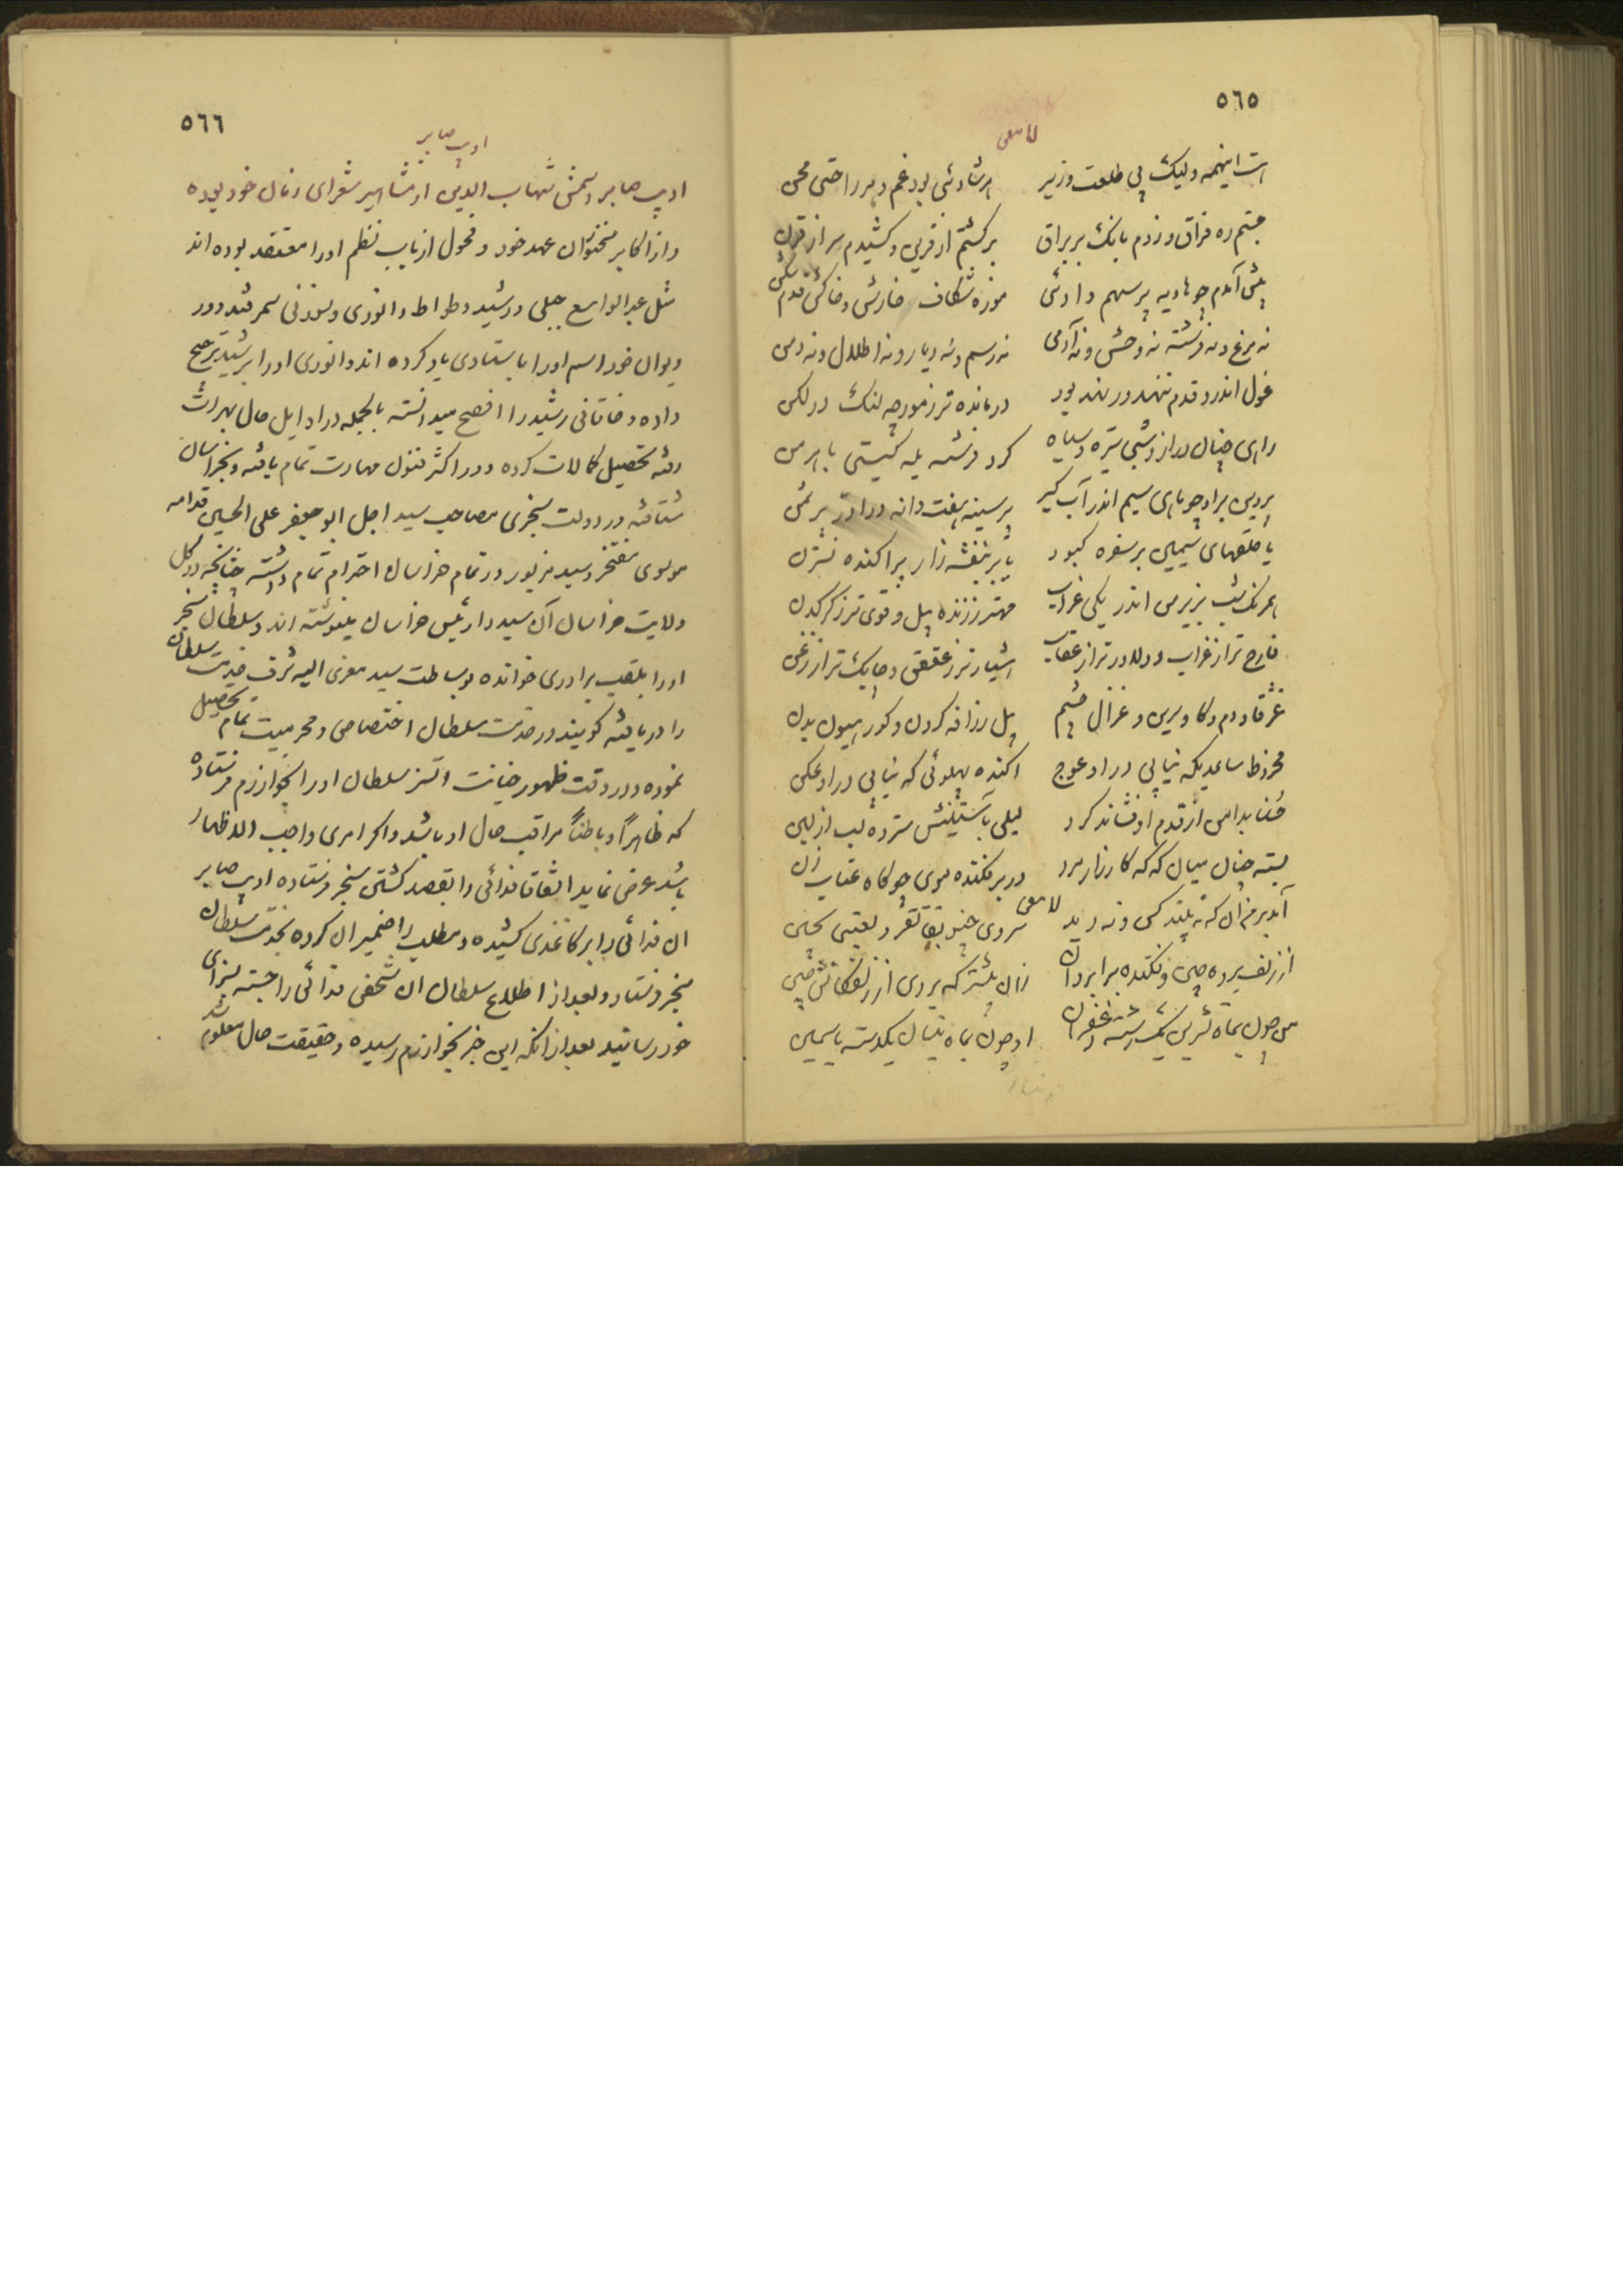 ٥٦٥
لامعی
است اینهمه ولیک بی طلعت وزیر هر شادئی بود غم و هر راحتی محن
جستم ره فراق و زدم بانک بر براق برکشتم از قرین و کشیدم سر از قرن
پیش آمدم چو هاویه پر سهم وادئی موزه شکاف خارش و خاکش قدم شکن
نه مرغ و نه فرشته نه وحش و نه آدمی نه رسم و نه دیار و نه اطلال و نه دمن
غول اندرو قدم ننهد ور نهد بود درمانده تر ز مورچه لنک در لکن
راهی چنان دراز و شبی تیره و سیاه کرد فرشته یله کیتی باهرمن
پروین برو چو بازی سیم اندر آب کیر بر سینه هفت دانه در از در ثمن
یا حلقهای سیمین بر سفره کبود یا بر بنفشه زار پراکنده نسترن
همرنک شب بزیر من اندر یکی غراب مهتر ز زنده پیل و قوی تر ز کرکدن
فارح تر از غراب و دلاور تر از عقاب هشیار تر ز عقعق و چابک تر از زغن
غژقاو دم و کاو سرین و غزال چشم پیل زرافه کردن و کور هیون بدن
مخروط ساعدیکه نیابی درو عوج اکنده پهلوئی که نیابی درو عکن
بسته چنان میان که که کارزار مرد در بر فکنده موی چو کاه عتاب زن
لامعی
آمد برم از آن که نه بیند کس و نه دید سروی چنو بقاتفر و لعبتی بچین
از زلف برده چین و فکنده بر ابروان زان بیشتر که بر وی از زلفکانش چین
من چون بماه تشرین یکدسته زعفران او چون بماه نیسان یکدسته یاسمین
٥٦٦
ادیب صابر
ادیب صابر و اسمش شهاب الدین از مشاهیر شعرای زمان خود بوده
و از اکابر سخنوران عهد خود و فحول ارباب نظم او را معتقد بوده اند
مثل عبدالواسع جبلی و رشید وطواط و انوری و سوزنی سمرقند و در
دیوان خود اسم او را باستادی یاد کرده اند و انوری او را بر رشید ترجیح
داده و خاقانی رشید را افصح میدانسته بالجمله در اوایل حال بهرات
رفته تحصیل کمالات کرده و در اکثر فنون مهارت تمام یافته و بخراسان
شتافته و در دولت سنجری بمصاحب سید اجل ابو جعفر علی الحسین قدامه
موسوی مفتخر و سید مزبور در تمام خراسان احترام تمام داشته چنانکه در کل
ولایت خراسان آن سید را رئیس خراسان مینوشته اند و سلطان سنجر
او را بلقب برادری خوانده بوساطت سید معزی الیه شرف خدمت سلطان
را دریافته کویند در خدمت سلطان اختصاص و محرمیت تمام تحصیل
نموده و در وقت ظهور خیانت اتسز سلطان او را بخوارزم فرستاده
که ظاهراً و باطناً مراقب حال او باشد و اکر امری واجب الاظهار
باشد عرض نماید اتفاقا فدائی را بقصد کشتن سنجر فرستاده ادیب صابر
آن فدائی را بر کاغذی کشیده و مطلب را ضمیر آن کرده بخدمت سلطان
سنجر فرستاد و بعد از اطلاع سلطان آن شخص فدائی را جسته بسزای
خود رسانید بعد از آنکه این خبر بخوارزم رسیده و حقیقت حال معلوم شد